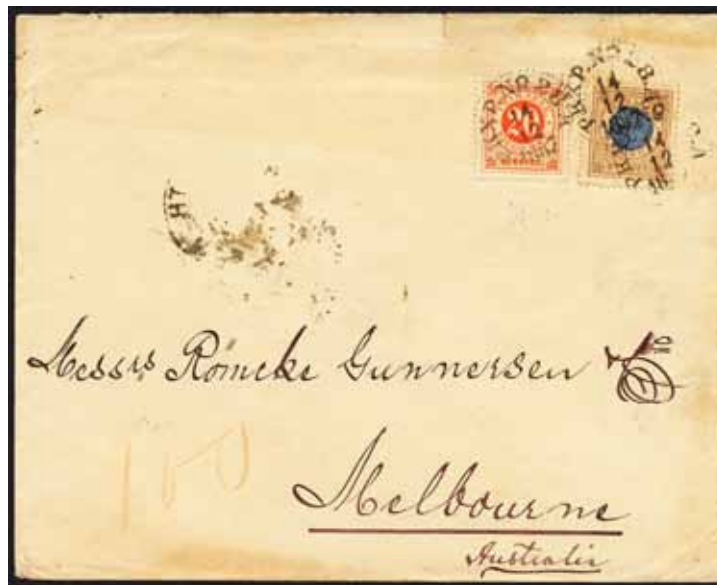 20
Messrs Römcke Gunnersen & Co
Melbourne
Australia
100